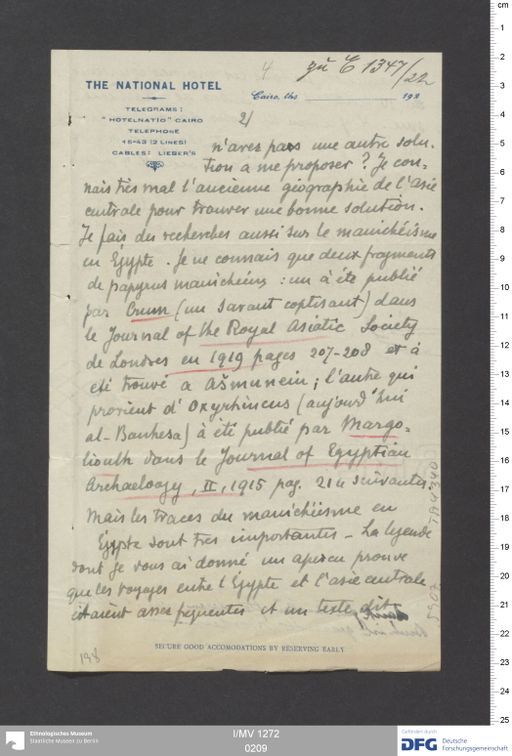 4
zu E 1347/22
THE NATIONAL HOTEL
Cairo, the 192
TELEGRAMS:
"HOTELNATIO" CAIRO
TELEPHONE
45-43 (2 LINES)
CABLES: LIEBER'S
2/
n'avez pas une autre solu-
tion a me proposer? Je con-
nais très mal l'ancienne géographie de l'asie
centrale pour trouver une bonne solution.
Je fais du recherches aussi sur le manichéisme
en Égypte. Je ne connais que deux fragments
de papyrus manichéens: un à été publié
par Crum (un savant coptisant) dans
le Journal of the Royal Asiatic Society
de Londres en 1919 pages 207-208 et à
été trouvé a Ašmunein; l'autre qui
provient d'Oxyrhincus (aujourd'hui
al-Banhesa) à été publié par Margo-
liouth dans le Journal of Egyptian
Archaeloogy, II, 1915 pag. 214 suivantes.
Mais les traces du manichéisme en
Égypte sont tres importantes - La legende
dont je vous ai donné un apercu prouve
que les voyages entre l'Égypte et l'asie centrale
étaient assez frequentes et un texte dit
SECURE GOOD ACCOMODATIONS BY RESERVING EARLY
198
TA 4340
5907
I/MV 1272
0209
Ethnologisches Museum
Staatliche Museen zu Berlin
Gefördert durch
DFG Deutsche
Forschungsgemeinschaft
cm
1
2
3
4
5
6
7
8
9
10
11
12
13
14
15
16
17
18
19
20
21
22
23
24
25